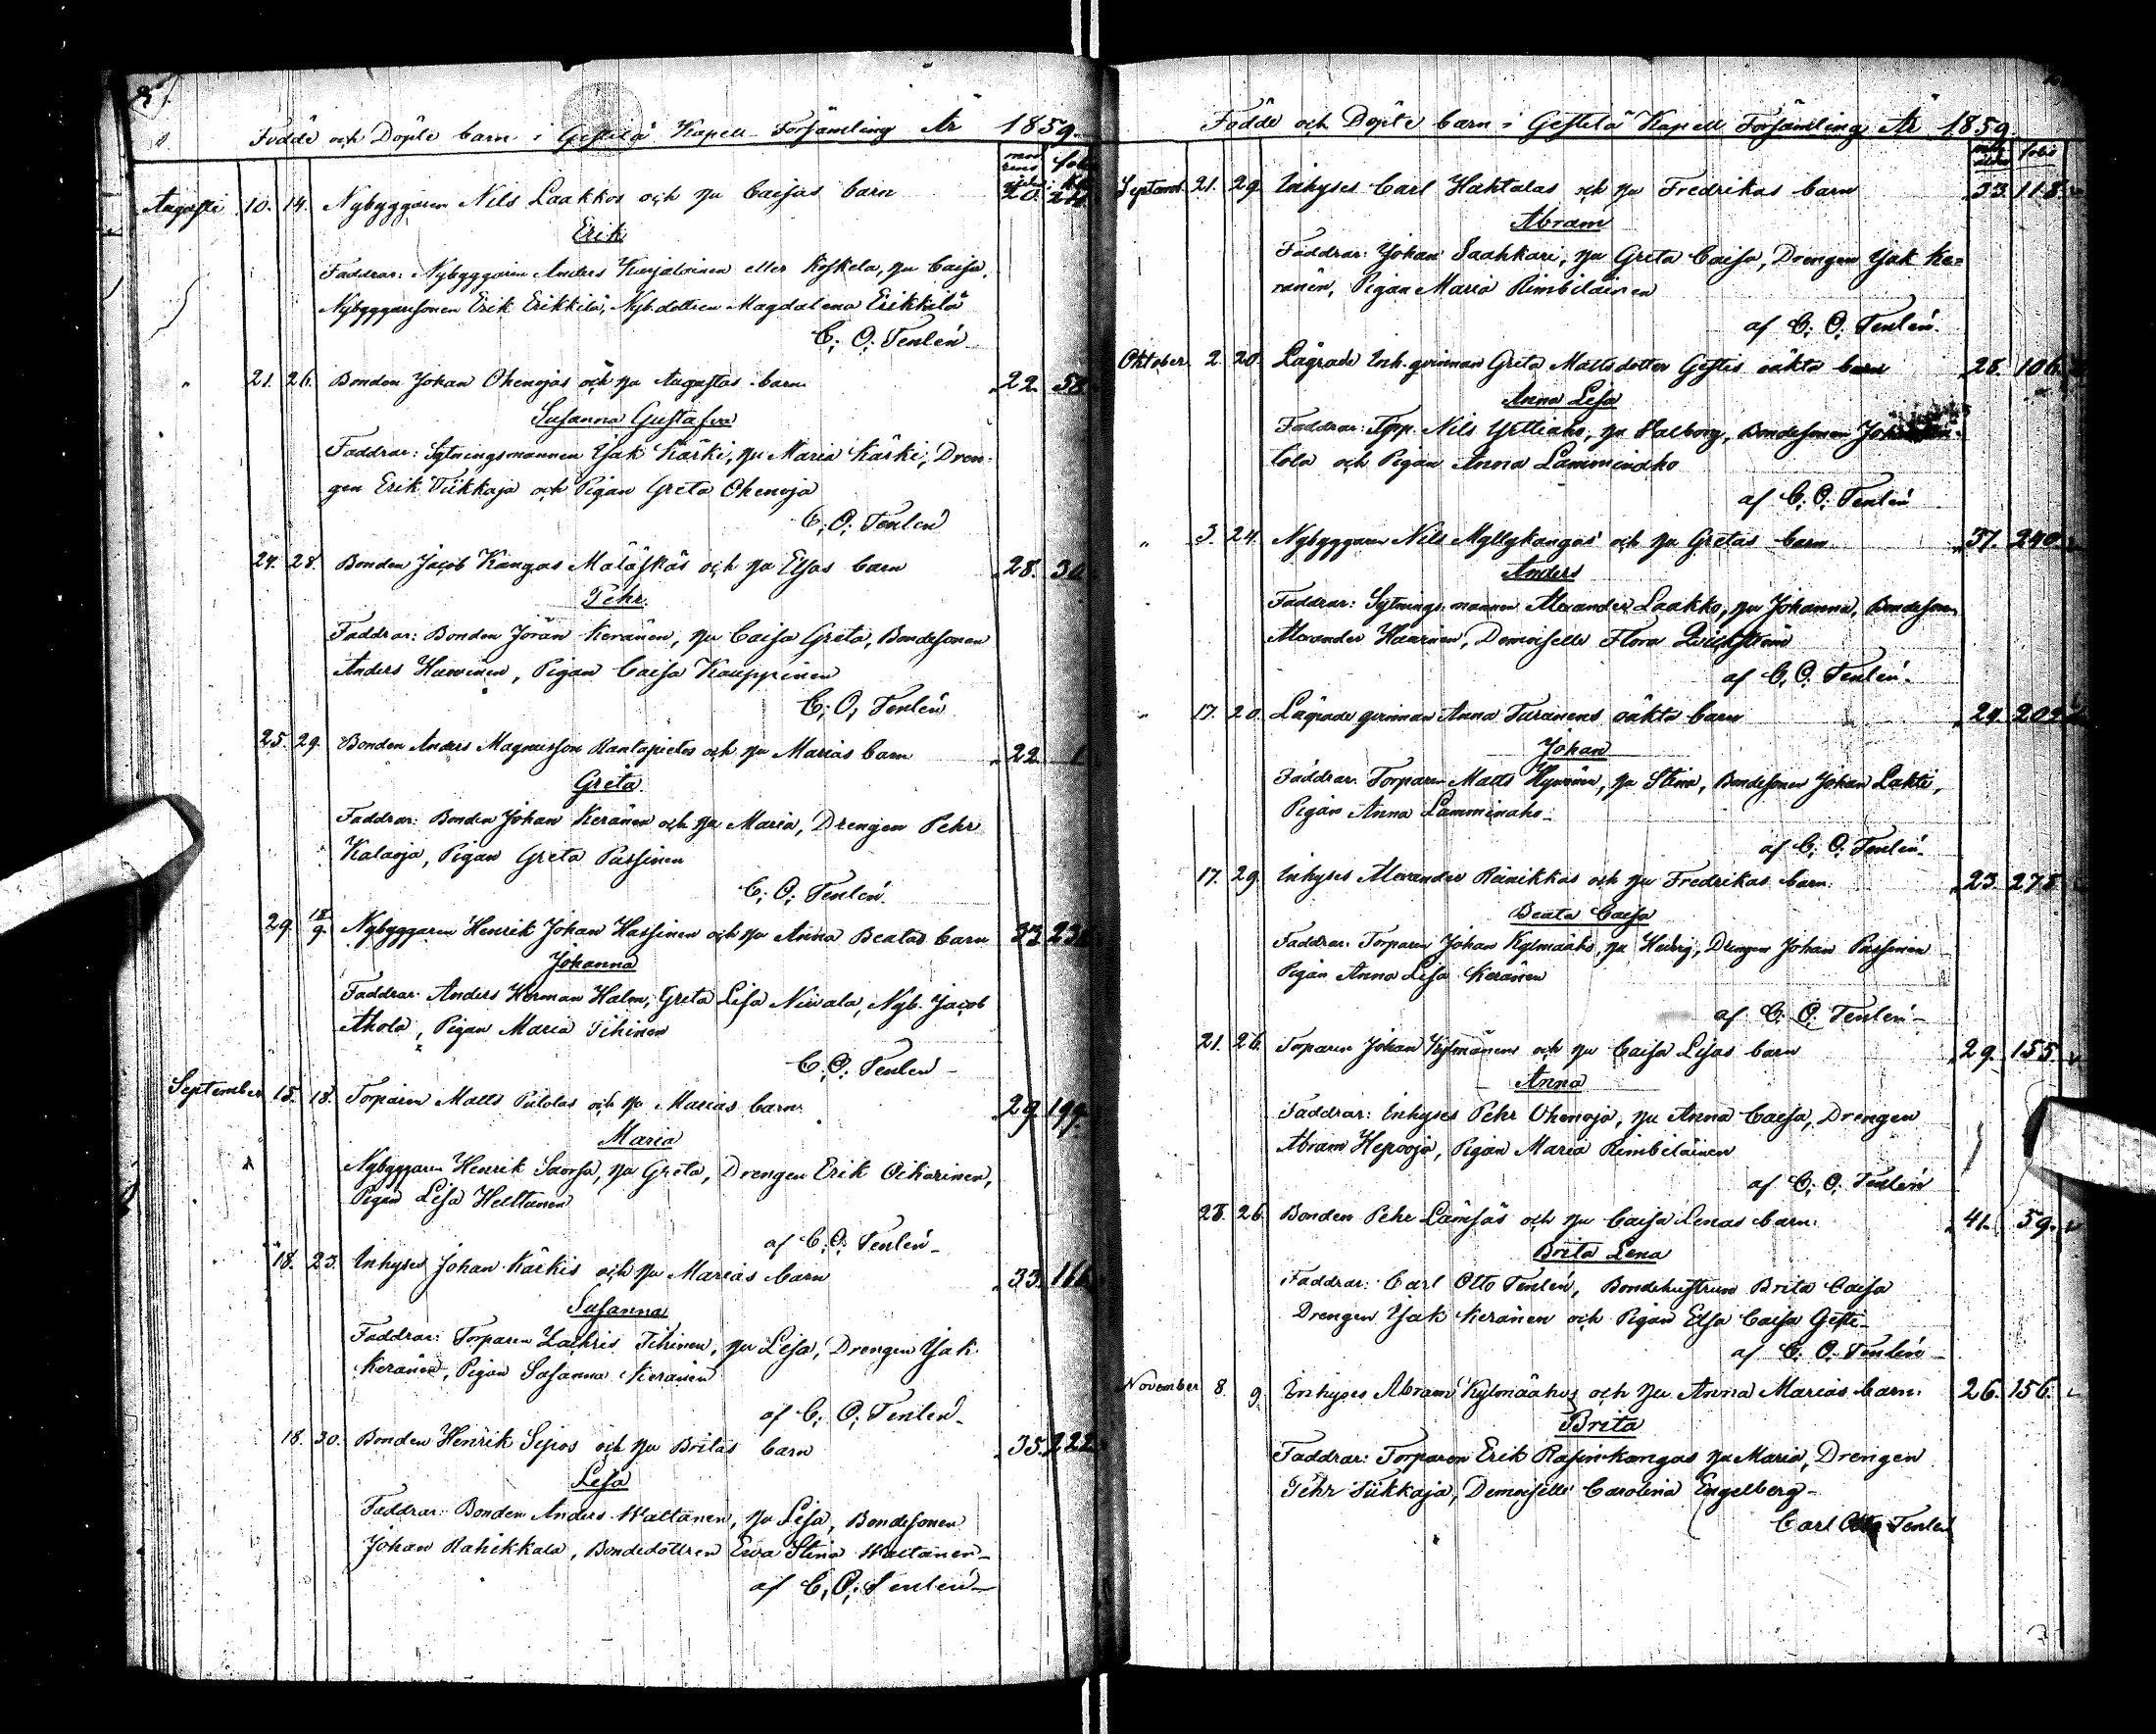 Födde och Döpte barn i Gestilä Kapell Församling År 1859.
Augusti 10. 14. Nybyggaren Nils Laakkos och hu Caisas barn
Erik
Faddrar: Nybyggaren Anders Karjaloinen eller Koskela, hu Caisa,
Nybyggaresonen Erik Erikkilä, Nyb. dottren Magdalena Erikkilä
C. O. Tenlén
" 21. 26. Bonden Johan Ohenojas och hu Augustas barn 22. 58.
Susanna Gustafva
Faddrar: Sytningsmannen Isak Kärki, hu Maria Kärki, Dren-
gen Erik Tiikkaja och Pigan Greta Ohenoja
C. O. Tenlén
24. 28. Bonden Jacob Kangas Mäläskäs och hu Elsas barn 28. 30.
Pehr.
Faddrar: Bonden Jöran Keränen, hu Caisa Greta, Bondesonen
Anders Hawinen, Pigan Caisa Kauppinen
C. O. Tenlén
25. 29. Bonden Anders Magnusson Rantapietos och hu Marias barn 22. 1.
Greta.
Faddrar: Bonden Johan Keränen och hu Maria, Drengen Pehr
Kalaoja, Pigan Greta Passinen
C. O. Tenlén.
29. 18/9. Nybyggaren Henrik Johan Hassinen och hu Anna Beatas barn 33
Johanna
Faddrar: Anders Herman Halm, Greta Lisa Niwala, Nyb. Jacob
Ahola, Pigan Maria Tihinen
C. O. Tenlén
September 15. 18. Torparen Matts Pulolas och hu Marias barn 29. 199.
Maria
Nybyggaren Henrik Saorsa, hu Greta, Drengen Erik Oikarinen,
Pigan Lisa Hultanen
af C. O. Tenlén
18. 23. Inhyses Johan Kärkis och hu Marias barn 33.
Susanna
Faddrar: Torparen Zachris Tihinen, hu Lisa, Drengen Isak
Keränen, Pigan Susanna Keränen
af C. O. Tenlén
18. 30. Bonden Henrik Sipos och hu Britas barn 35. 222.
Lisa
Faddrar: Bonden Anders Waltanen, hu Lisa, Bondesonen
Johan Rahikkala, Bondedottren Ewa Stina Waltanen
af C. O. Tenlén
Födde och Döpte barn i Gestilä Kapell Församling År 1859.
Septemb. 21. 29. Inhyses Carl Hahtalas och hu Fredrikas barn 33. 118.
Abram
Faddrar: Johan Saahkari, hu Greta Caisa, Drengen Isak Ke-
ränen, Pigan Maria Rimbiläinen
af C. O. Tenlén.
Oktober 2. 20. Lägrade Inh. qvinnan Greta Mattsdotter Gestis oäkta barn 28. 106.
Anna Lisa
Faddrar: Torp. Nils Yrttiaho, hu Walborg, Bondesonen
lola och Pigan Anna Lamminaho
af C. O. Tenlén
" 3. 24. Nybyggaren Nils Myllykangas och hu Gretas barn 37. 240.
Anders
Faddrar: Sytningsmannen Alexander Laakko, hu Johanna, Bondesonen
Alexander Haarinen, Demoiselle Flora
af C. O. Tenlén.
" 17. 20. Lägrade qvinnan Anna Turanens oäkta barn 29.
Johan
Faddrar: Torparen Matts Hyvönen, hu Stina, Bondesonen Johan Lahti,
Pigan Anna Lamminaho
af C. O. Tenlén
17. 29. Inhyses Alexander Reinikkas och hu Fredrikas barn 23. 278.
Beata Caisa
Faddrar: Torparen Johan Kylmäaho, hu Hedvig, Drengen Johan Passinen
Pigan Anna Lisa Keränen
af C. O. Tenlén
21. 26. Torparen Johan Kylmänens och hu Caisa Lisas barn 29. 155.
Anna
Faddrar: Inhyses Pehr Ohenoja, hu Anna Caisa, Drengen
Abram Hepooja, Pigan Maria Rimbiläinen
af C. O. Tenlén
28. 26. Bonden Pehr Lämsäs och hu Caisa Lenas barn. 41. 59.
Brita Lena
Faddrar: Carl Otto Tenlén, Bondehustrun Brita Caisa
Drengen Isak Keränen och Pigan Elsa Caisa Gesti
af C. O. Tenlén
November 8. 9. Inhyses Abram Kylmäahos och hu Anna Marias barn. 26. 156.
Brita
Faddrar: Torparen Erik Rasinkangas hu Maria, Drengen
Pehr Tiikkaja, Demoiselle Carolina Engelberg
Carl Otto Tenlén